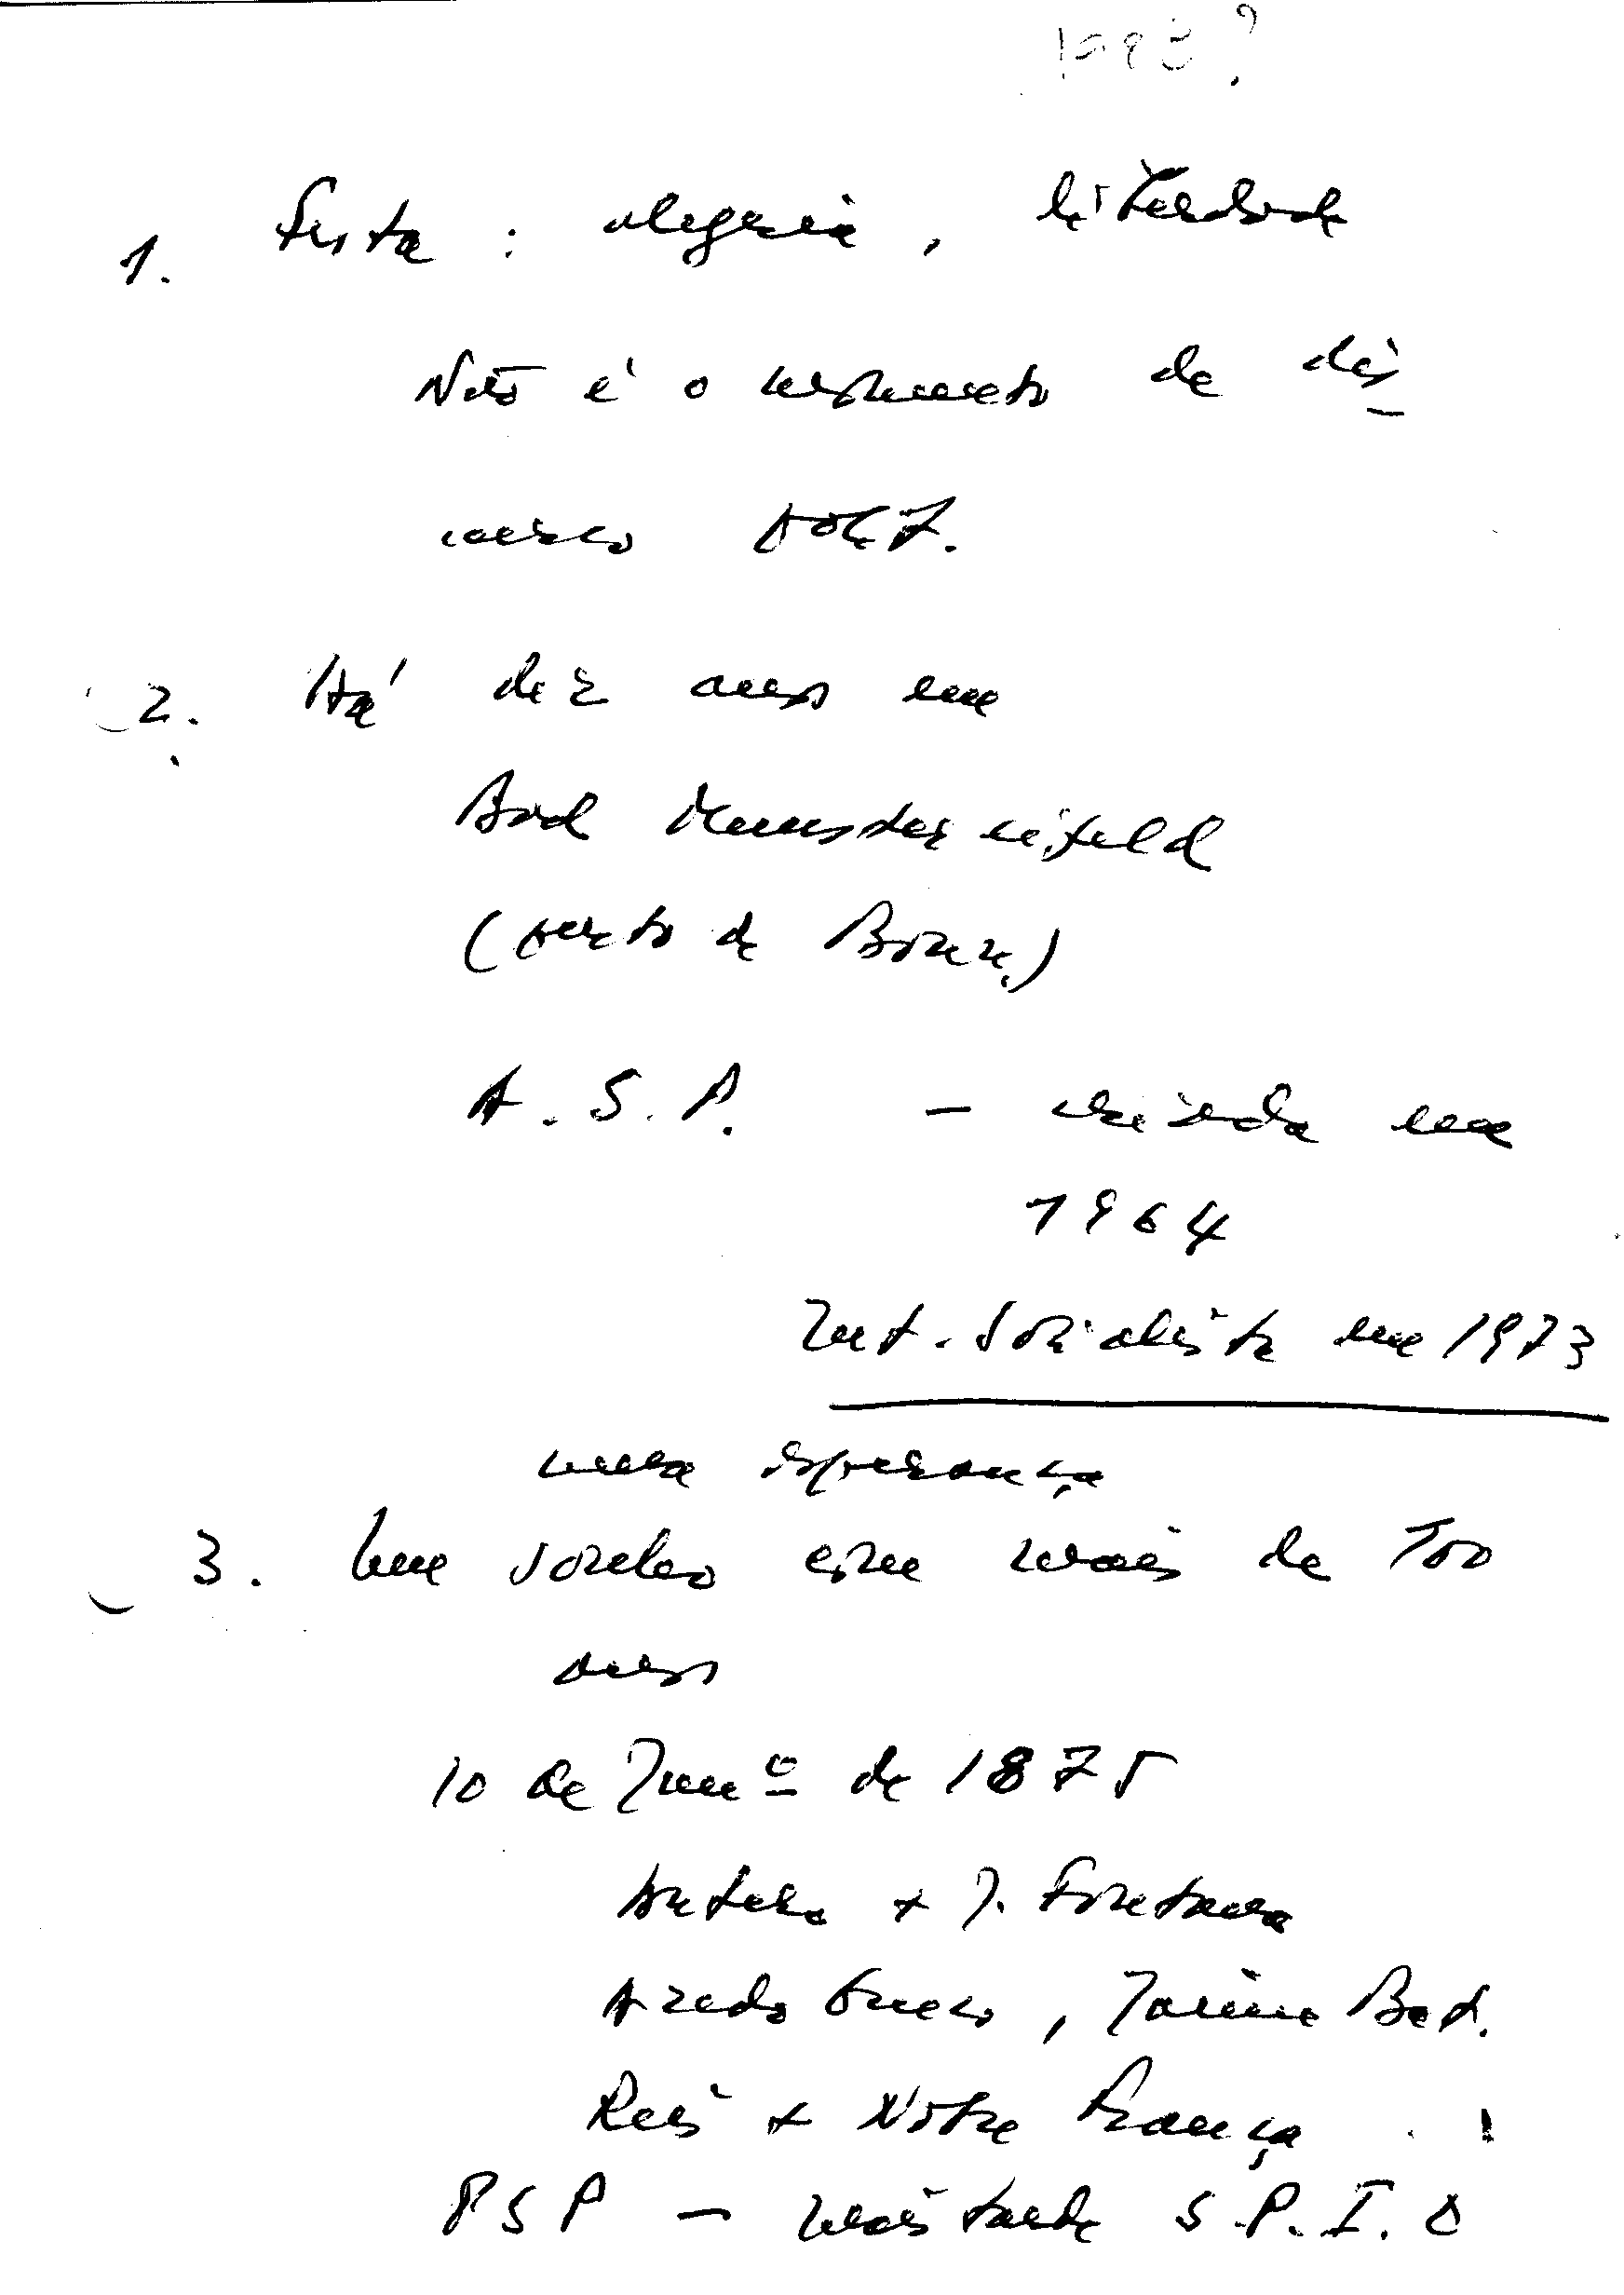 1983?
1. Festa : alegria, liberdade
Não é o momento de dis
curso polí7.
2. Há dez anos em
Bad Munstereifeld
(perto de Bona)
A.S.P. – criada em
1964
Int. Socialista em 1973
uma esperança
3. Um sonho com mais de 100
anos
10 de Janº de 1875
Antero + J. Fontana
Azedo Gneco, Jaime Bat.
Reis + Nobre França
PSP – mais tarde S.P.I.O